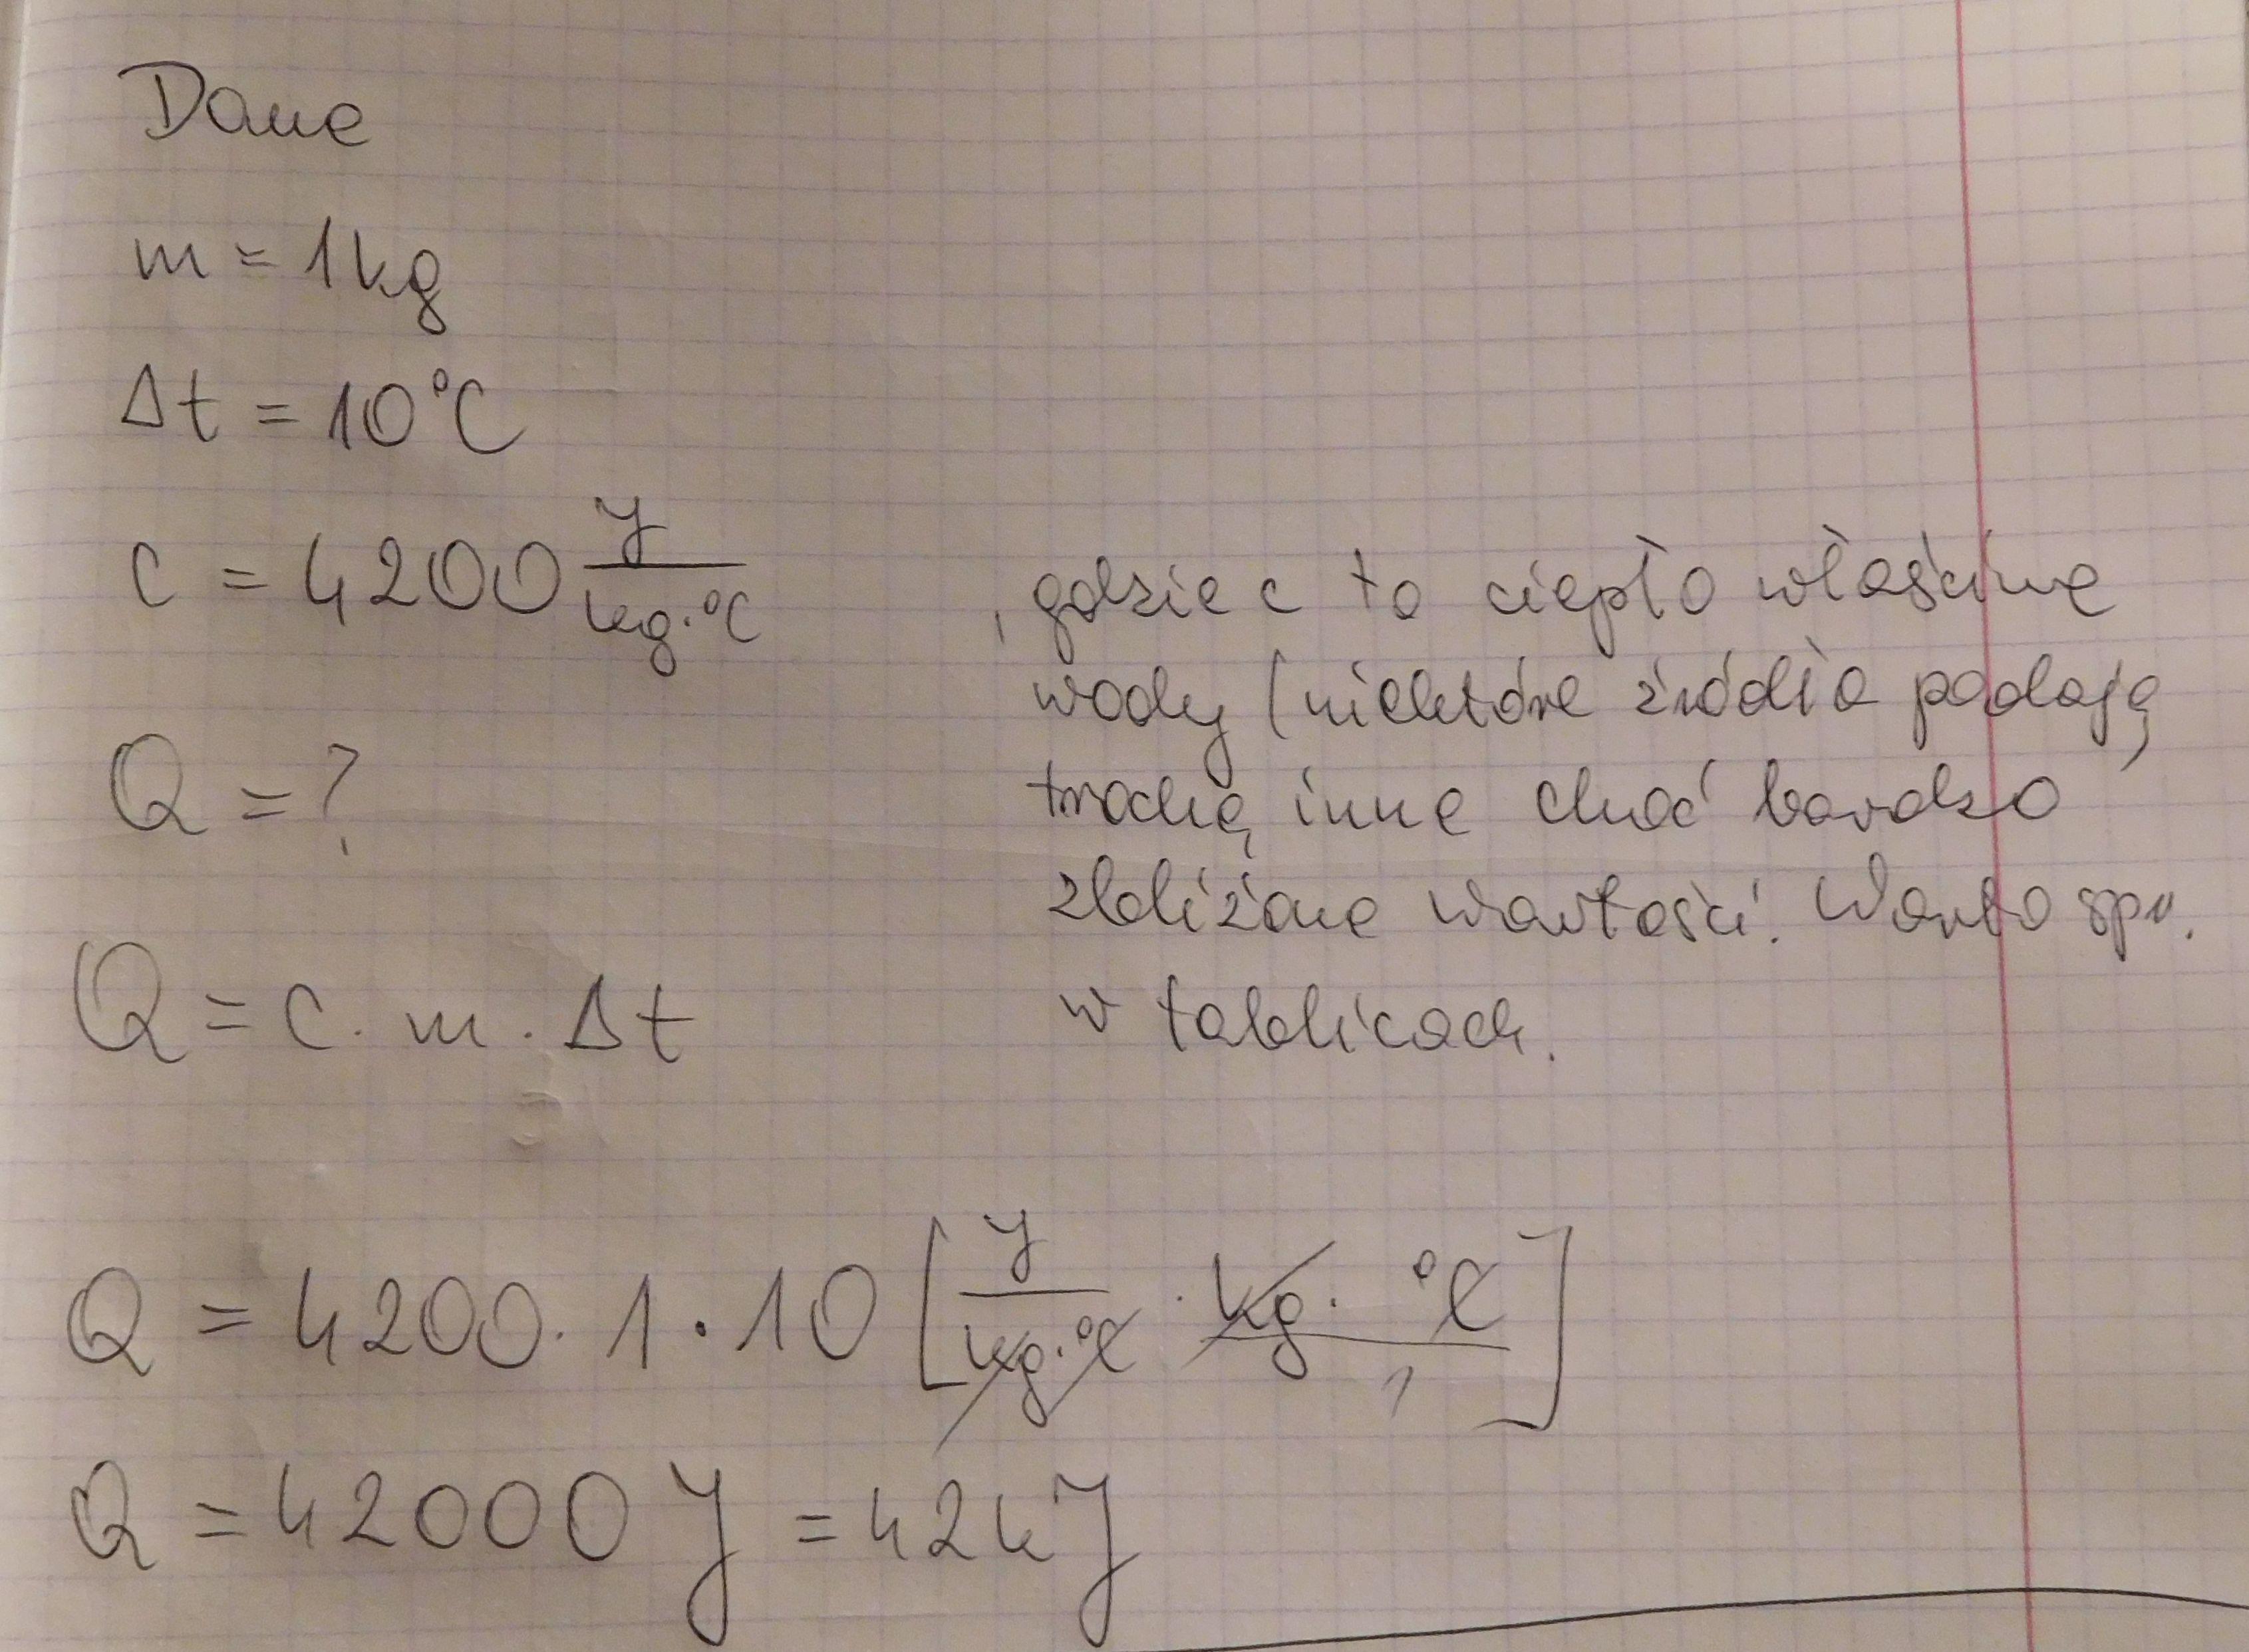 Dane
m = 1kg
Δt = 10°C
c = 4200 J/kg·°C
, gdzie c to ciepło właściwe
wody (niektóre źródła podają
trochę inne choć bardzo
zbliżone wartości. Warto spr.
w tablicach.
Q = ?
Q = c · m · Δt
Q = 4200 · 1 · 10 [J/kg·°C · kg · °C/1]
Q = 42000 J = 42kJ